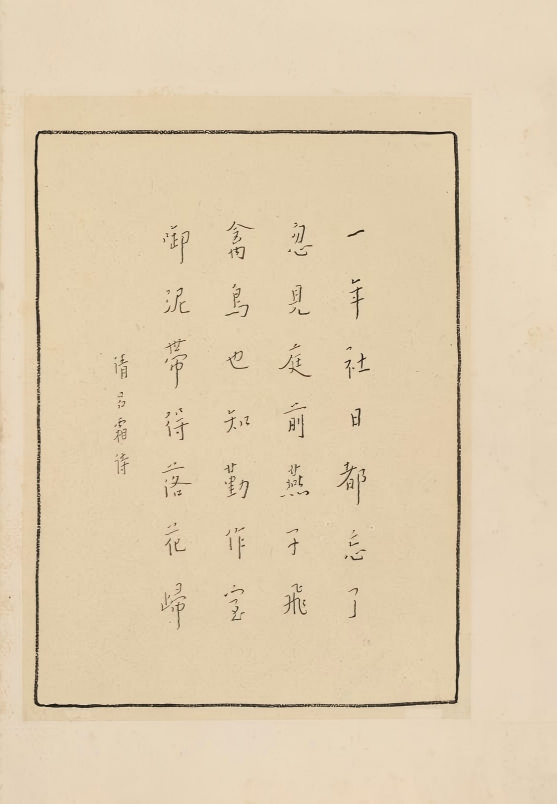 一年社日都忘了
忽見庭前燕子飛
禽鳥也知勤作室
啣泥帶得落花歸
清呂霜詩